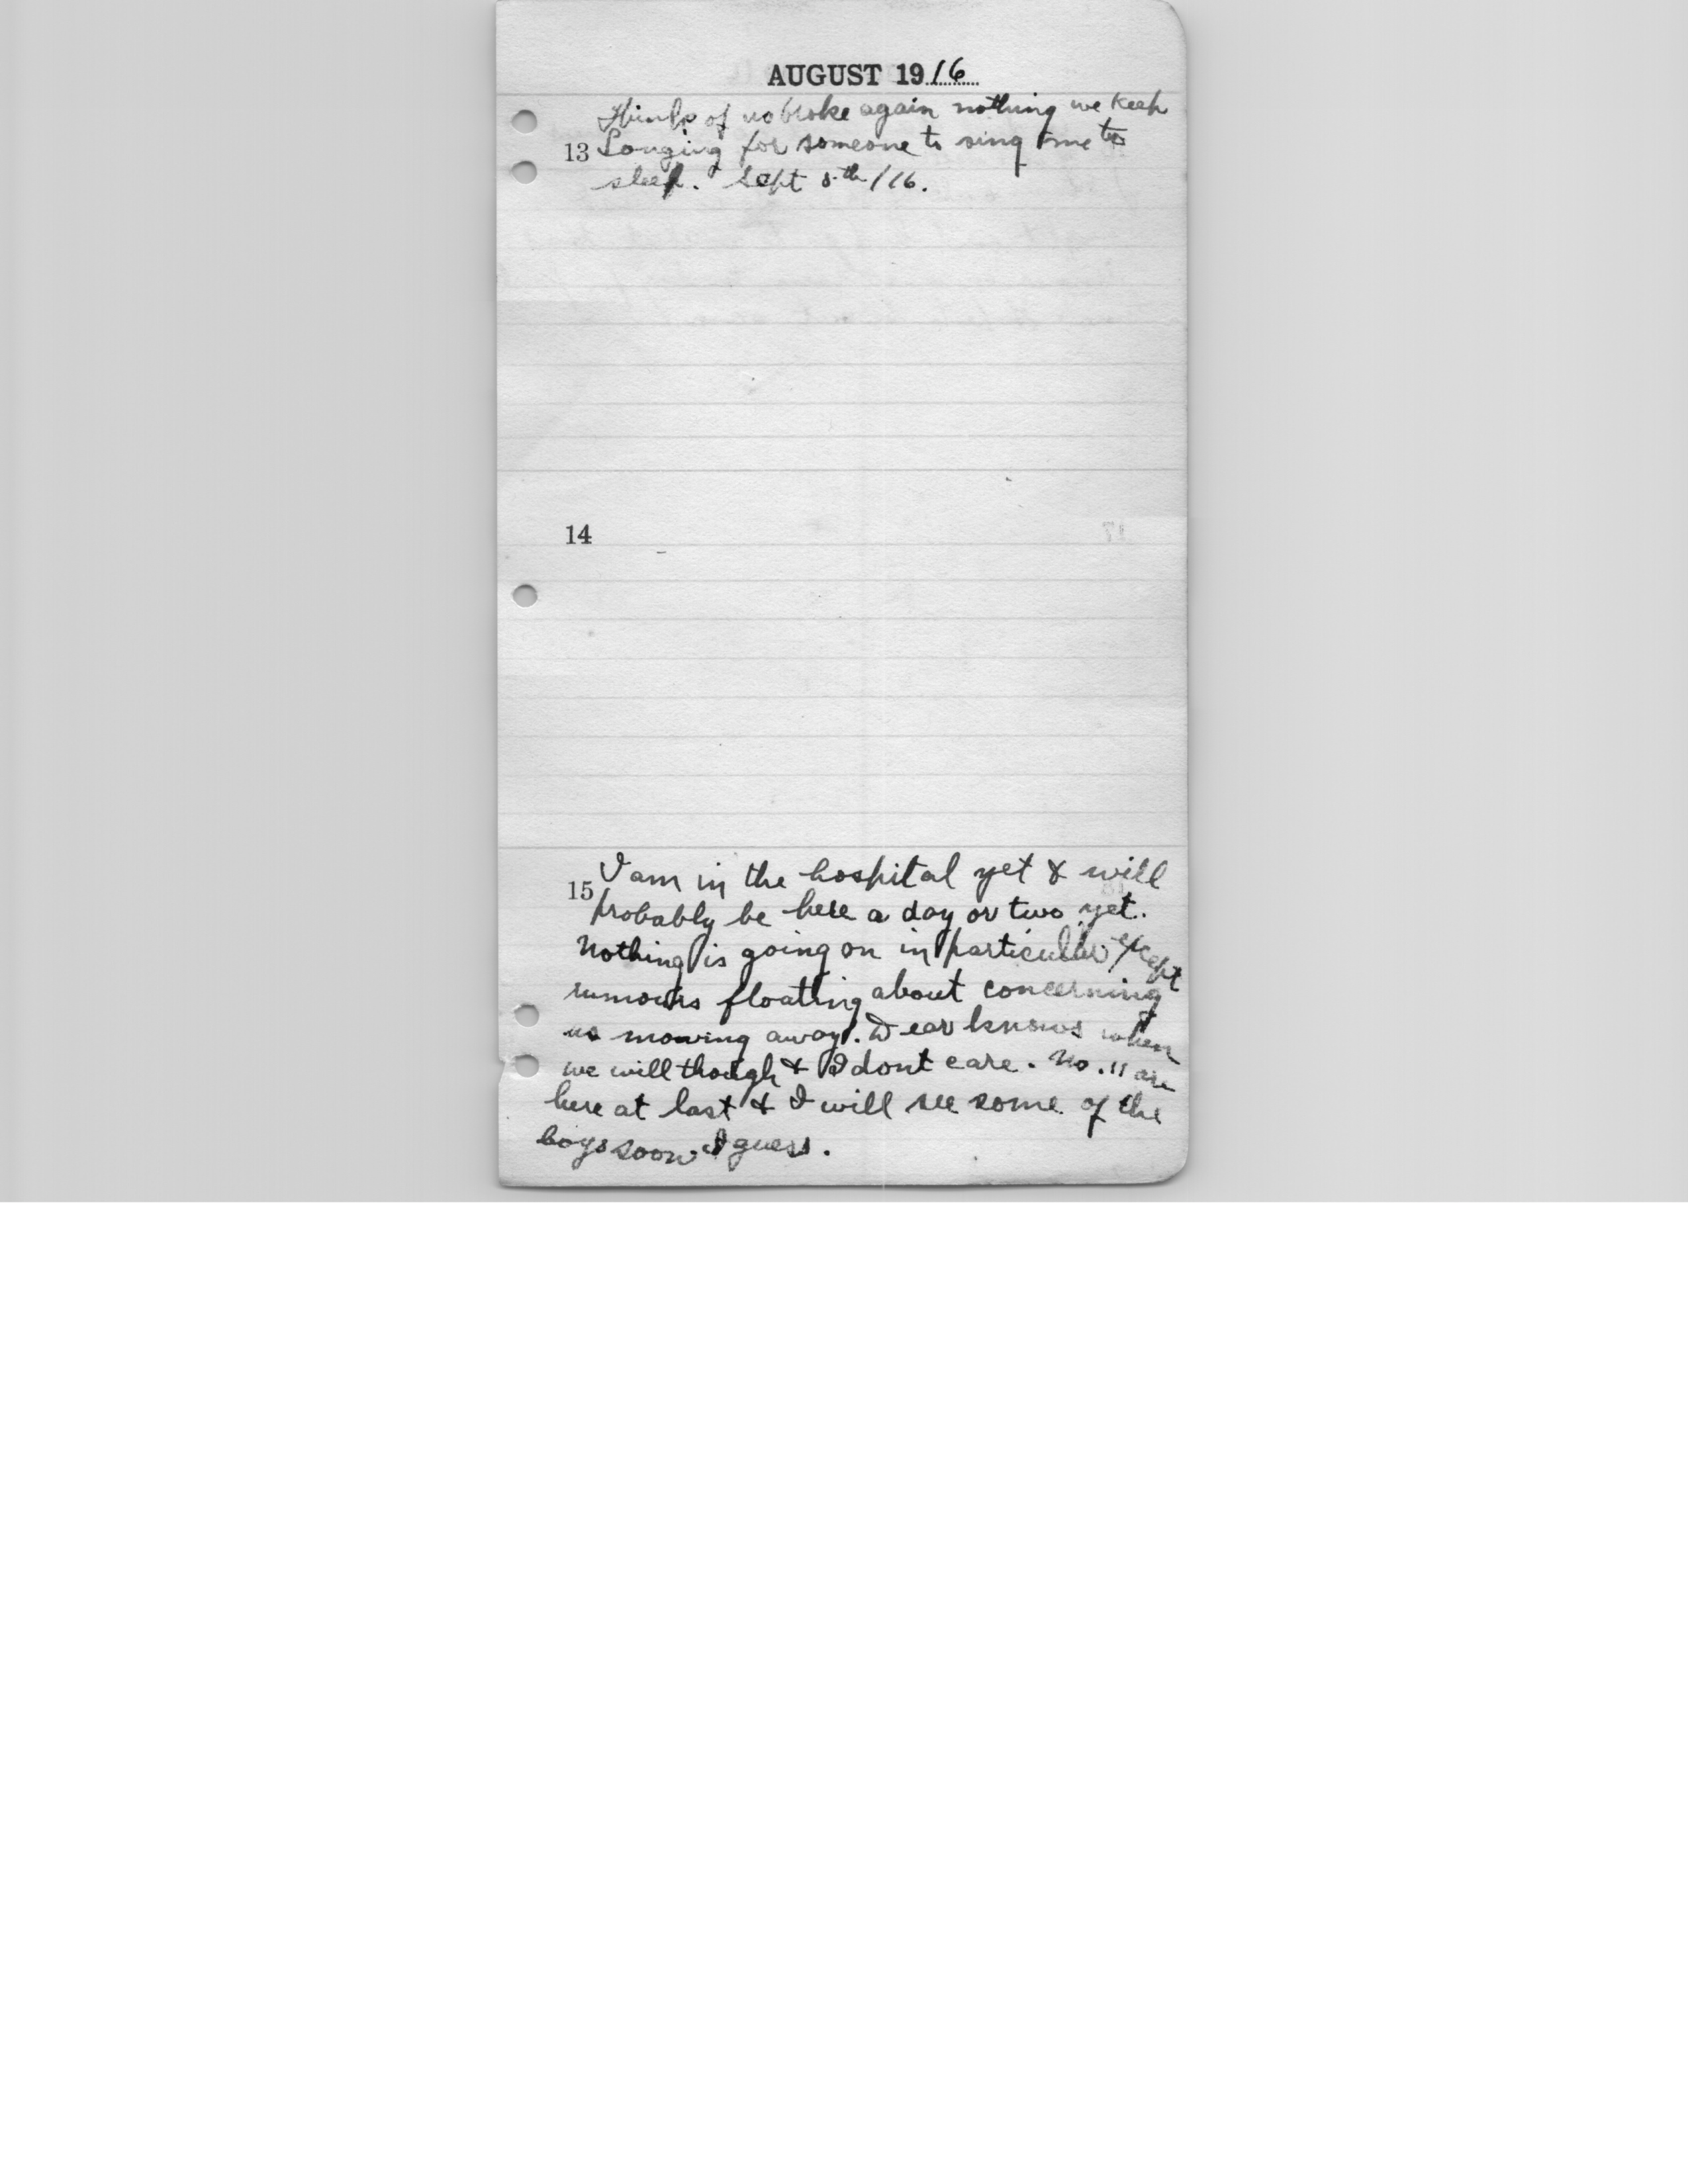 AUGUST 1916
Think of us broke again nothing we keep
13 Longing for someone to sing me to
sleep. Sept 8th/16.
14
15 I am in the hospital yet & will
probably be here a day or two yet.
Nothing is going on in particular except
rumours floating about concerning
us moving away. Dear knows when
we will though & I dont care. No. 11 are
here at last & I will see some of the
boys soon I guess.